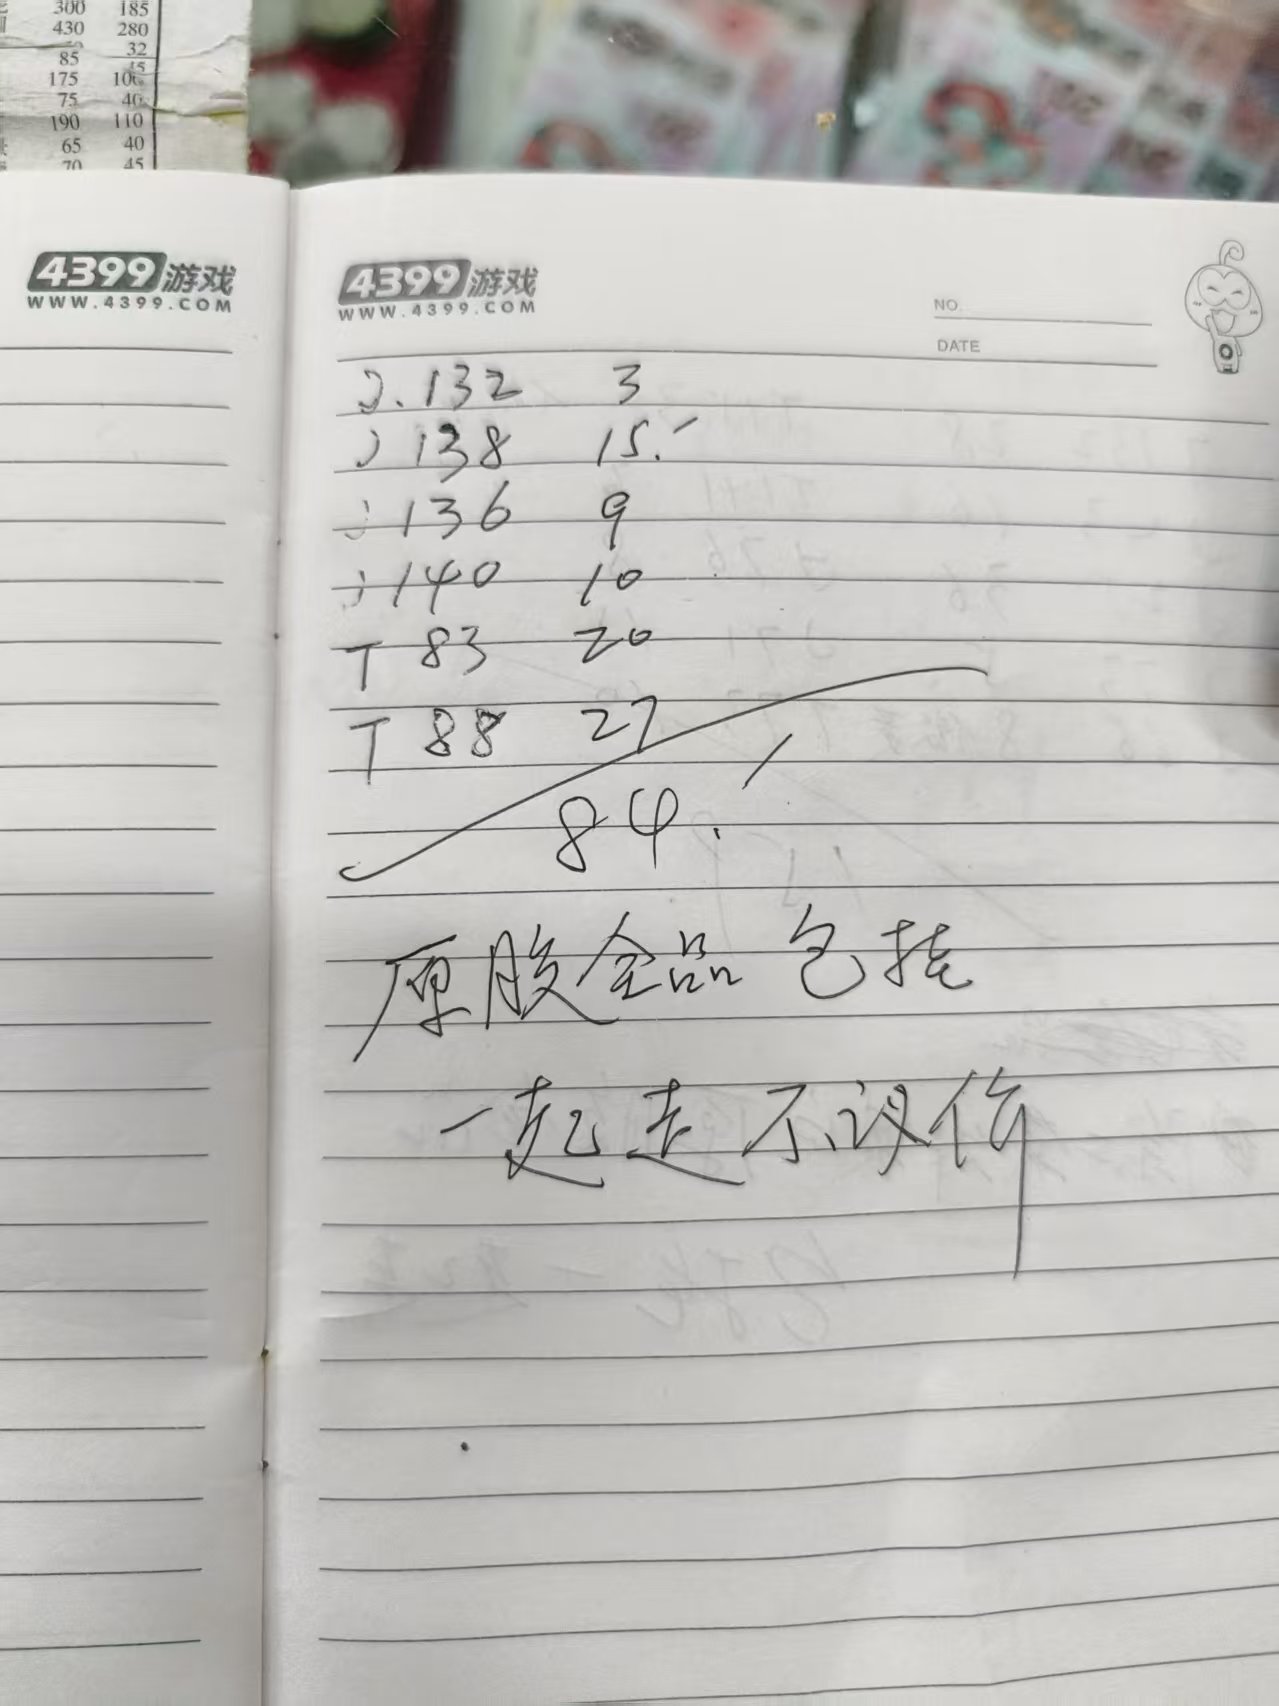 300 185
430 280
32
85 45
175 106
75 40
190 110
65 40
70 45
4399游戏
WWW.4399.COM
4399游戏
WWW.4399.COM
NO.
DATE
J.132 3
J 138 15.
J 136 9
J 140 10
T 83 20
T 88 27
84.
原胶全品 包挂
一起走 不议价